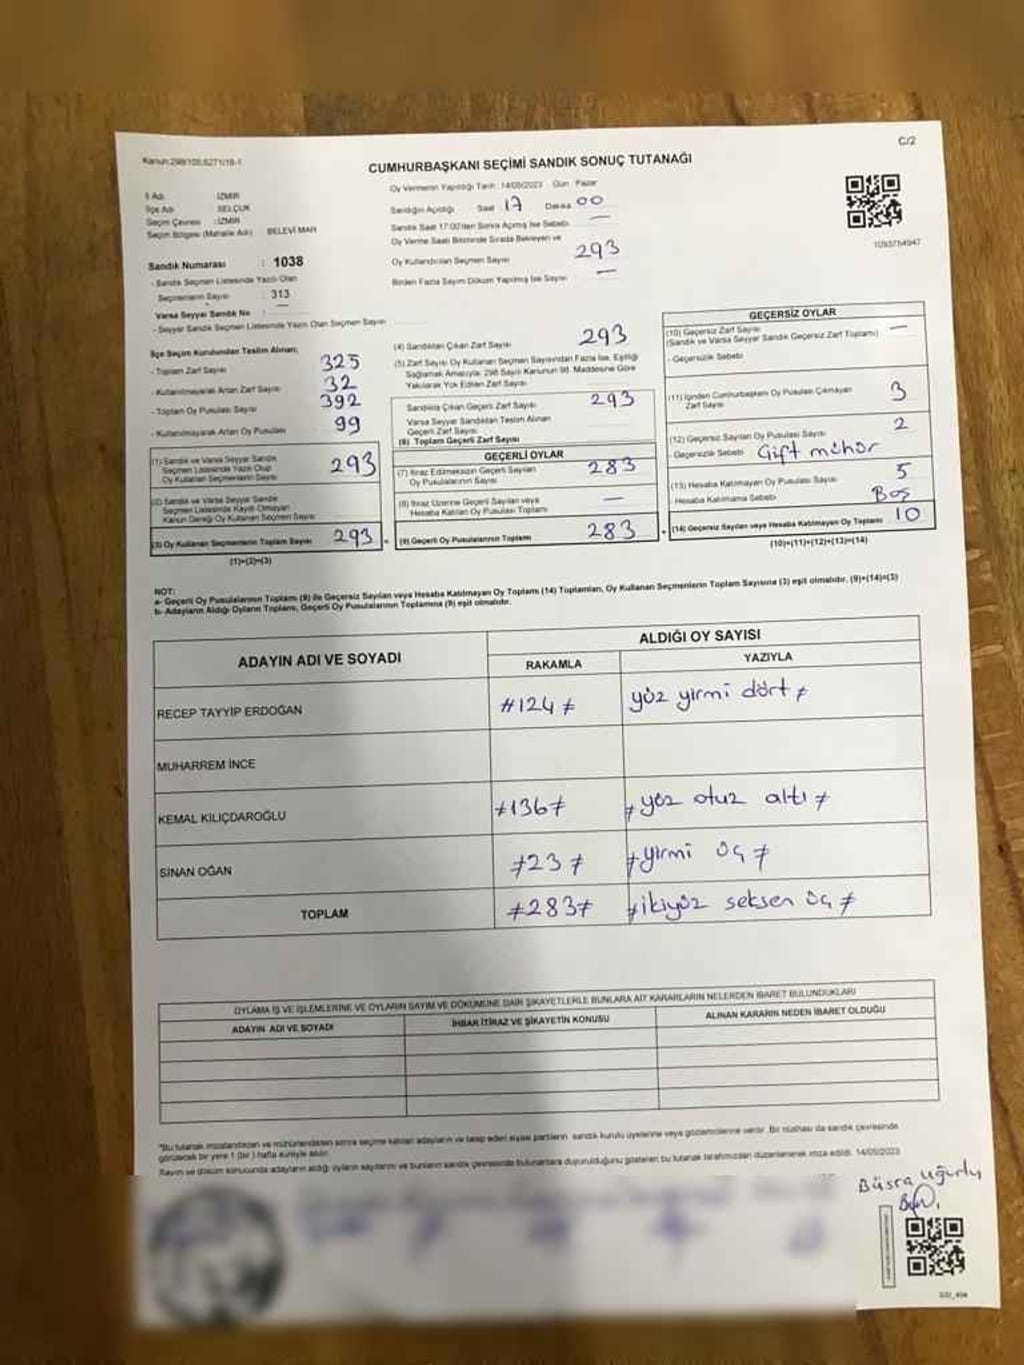 Kanun:298/105,6271/18-1
C/2
CUMHURBAŞKANI SEÇİMİ SANDIK SONUÇ TUTANAĞI
İl Adı : İZMİR
İlçe Adı : SELÇUK
Seçim Çevresi : İZMİR
Seçim Bölgesi (Mahalle Adı) BELEVİ MAH
Sandık Numarası : 1038
- Sandık Seçmen Listesinde Yazılı Olan
Seçmenlerin Sayısı : 313
Varsa Seyyar Sandık No : —
- Seyyar Sandık Seçmen Listesinde Yazılı Olan Seçmen Sayısı
Oy Vermenin Yapıldığı Tarih : 14/05/2023 Gün : Pazar
Sandığın Açıldığı Saat 17 Dakika 00
Sandık Saat 17:00'den Sonra Açılmış İse Sebebi —
Oy Verme Saati Bitiminde Sırada Bekleyen ve
Oy Kullandırılan Seçmen Sayısı 293
Birden Fazla Sayım Döküm Yapılmış İse Sayısı —
1093754947
İlçe Seçim Kurulundan Teslim Alınan;
- Toplam Zarf Sayısı 325
- Kullanılmayarak Artan Zarf Sayısı 32
- Toplam Oy Pusulası Sayısı 392
- Kullanılmayarak Artan Oy Pusulası 99
(1) Sandık ve Varsa Seyyar Sandık
Seçmen Listesinde Yazılı Olup
Oy Kullanan Seçmenlerin Sayısı 293
(2) Sandık ve Varsa Seyyar Sandık
Seçmen Listesinde Kaydı Olmayan
Kanun Gereği Oy Kullanan Seçmen Sayısı
(3) Oy Kullanan Seçmenlerin Toplam Sayısı 293
(1)+(2)=(3)
(4) Sandıktan Çıkan Zarf Sayısı 293
(5) Zarf Sayısı Oy Kullanan Seçmen Sayısından Fazla İse, Eşitliği
Sağlamak Amacıyla; 298 Sayılı Kanunun 98. Maddesine Göre
Yakılarak Yok Edilen Zarf Sayısı
Sandıkta Çıkan Geçerli Zarf Sayısı 293
Varsa Seyyar Sandıktan Teslim Alınan
Geçerli Zarf Sayısı
(6) Toplam Geçerli Zarf Sayısı
GEÇERLİ OYLAR
(7) İtiraz Edilmeksizin Geçerli Sayılan
Oy Pusulalarının Sayısı 283
(8) İtiraz Üzerine Geçerli Sayılan veya
Hesaba Katılan Oy Pusulası Toplamı —
(9) Geçerli Oy Pusulalarının Toplamı 283
GEÇERSİZ OYLAR
(10) Geçersiz Zarf Sayısı
(Sandık ve Varsa Seyyar Sandık Geçersiz Zarf Toplamı) —
- Geçersizlik Sebebi
(11) İçinden Cumhurbaşkanı Oy Pusulası Çıkmayan
Zarf Sayısı 3
(12) Geçersiz Sayılan Oy Pusulası Sayısı 2
- Geçersizlik Sebebi Çift mühür
(13) Hesaba Katılmayan Oy Pusulası Sayısı 5
Hesaba Katılmama Sebebi Boş
(14) Geçersiz Sayılan veya Hesaba Katılmayan Oy Toplamı 10
(10)+(11)+(12)+(13)=(14)
NOT:
a- Geçerli Oy Pusulalarının Toplamı (9) ile Geçersiz Sayılan veya Hesaba Katılmayan Oy Toplamı (14) Toplamları, Oy Kullanan Seçmenlerin Toplam Sayısına (3) eşit olmalıdır. (9)+(14)=(3)
b- Adayların Aldığı Oyların Toplamı, Geçerli Oy Pusulalarının Toplamına (9) eşit olmalıdır.
ADAYIN ADI VE SOYADI
ALDIĞI OY SAYISI
RAKAMLA YAZIYLA
RECEP TAYYİP ERDOĞAN #124≠ yüz yirmi dört≠
MUHARREM İNCE
KEMAL KILIÇDAROĞLU ≠136≠ ≠yüz otuz altı≠
SİNAN OĞAN ≠23≠ ≠yirmi üç≠
TOPLAM ≠283≠ ≠ikiyüz seksen üç≠
OYLAMA İŞ VE İŞLEMLERİNE VE OYLARIN SAYIM VE DÖKÜMÜNE DAİR ŞİKAYETLERLE BUNLARA AİT KARARLARIN NELERDEN İBARET BULUNDUKLARI
ADAYIN ADI VE SOYADI İHBAR İTİRAZ VE ŞİKAYETİN KONUSU ALINAN KARARIN NEDEN İBARET OLDUĞU
*Bu tutanak imzalandıktan ve mühürlendikten sonra seçime katılan adayların ve talep eden siyasi partilerin sandık kurulu üyelerine veya gözlemcilerine verilir. Bir nüshası da sandık çevresinde
görülecek bir yere 1 (bir) hafta süreyle asılır.
Sayım ve döküm sonucunda adayların aldığı oyların sayılarını ve bunların sandık çevresinde bulunanlara duyurulduğunu gösteren bu tutanak tarafımızdan düzenlenerek imza edildi. 14/05/2023
Büşra Uğurlu